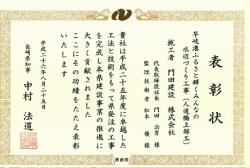 表彰状
早岐港ふるさとほくんなんの
水辺づくり工事(人道橋上部工)
施工者 門田建設 株式会社
代表取締役社長 門田 治男 様
監理技術者 松本 優 様
貴社は平成二十五年度に卓越した
工法と技術をもって県発注の工事
を完成し本県建設事業の推進に
大きく貢献されました
ここにその功績をたたえ表彰
いたします
平成二十六年八月二十五日
長崎県知事 中村 法道